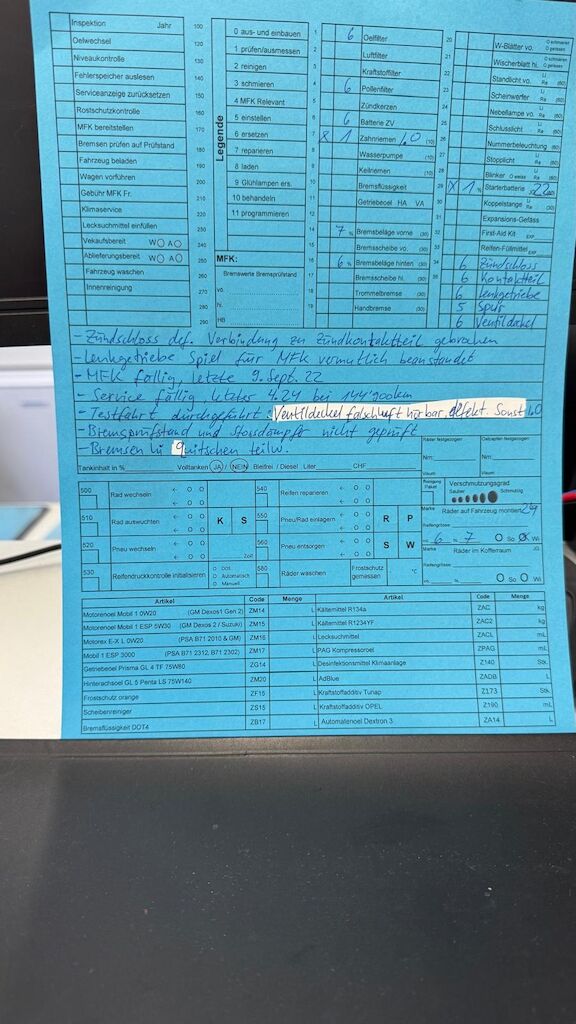 Inspektion Jahr 100
Oelwechsel 120
Niveaukontrolle 130
Fehlerspeicher auslesen 140
Serviceanzeige zurücksetzen 150
Rostschutzkontrolle 160
MFK bereitstellen 170
Bremsen prüfen auf Prüfstand 180
Fahrzeug beladen 190
Wagen vorführen 200
Gebühr MFK Fr. 210
Klimaservice 220
Lecksuchmittel einfüllen 230
Vekaufsbereit W O A O 240
Ablieferungsbereit W O A O 250
Fahrzeug waschen 260
Innenreinigung 270
280
290
Legende
0 aus- und einbauen
1 prüfen/ausmessen
2 reinigen
3 schmieren
4 MFK Relevant
5 einstellen
6 ersetzen
7 reparieren
8 laden
9 Glühlampen ers.
10 behandeln
11 programmieren
MFK:
Bremswerte Bremsprüfstand
vo.
hl.
HB
1 6 Oelfilter
2 Luftfilter
3 Kraftstofffilter
4 6 Pollenfilter
5 Zündkerzen
6 6 Batterie ZV
7 x 1 Zahnriemen 1.0 (10)
8 Wasserpumpe (10)
9 Keilriemen (10)
10 Bremsflüssigkeit
11 Getriebeoel HA VA
14 7 % Bremsbeläge vorne (30)
15 Bremsscheibe vo. (30)
16 6 % Bremsbeläge hinten (30)
17 Bremsscheibe hl. (30)
18 Trommelbremse (30)
19 Handbremse (30)
20 W-Blätter vo. O schmieren O gerissen
21 Wischerblatt hl. O schmieren O gerissen
22 Standlicht vo. Li Re (60)
23 Scheinwerfer Li Re (60)
24 Nebellampe vo. Li Re (60)
25 Schlusslicht Li Re (60)
26 Nummerbeleuchtung (60)
27 Stopplicht Li Re (60)
28 Blinker O weiss Li Re (60)
29 x 1 % Starterbatterie
30 Koppelstange Li Re (30)
31 Expansions-Gefäss
32 First-Aid Kit EXP.
33 Reifen-Füllmittel EXP.
34 6 Zündschloss
35 6 Kontaktteil
6 Lenkgetriebe
5 Spur
6 Ventildekel
- Zündschloss def. Verbindung zu Zündkontaktteil gebrochen
- Lenkgetriebe Spiel für MFK vermutlich beanstandet
- MFK fällig, letzte 9. Sept. 22
- Service fällig, letzter 4.24 bei 144'900km
- Testfahrt durchgeführt: Ventildeckel falschluft hörbar, defekt. Sonst i.O
- Bremsprüfstand und Stossdämpfer nicht geprüft
- Bremsen hi quitschen teilw.
Tankinhalt in % Volltanken JA / NEIN Bleifrei / Diesel Liter CHF
Räder festgezogen Nm: Visum:
Radzapfen festgezogen Nm: Visum:
500 Rad wechseln ← O O ← O O
510 Rad auswuchten ← O O ← O O K S
520 Pneu wechseln ← O O ← O O Zoll
530 Reifendruckkontrolle initialisieren O DOT. O Automatisch O Manuell
540 Reifen reparieren ← O O ← O O
550 Pneu/Rad einlagern ← O O ← O O R P
560 Pneu entsorgen ← O O ← O O S W
580 Räder waschen Frostschutz gemessen °C
Reinigung Paket Verschmutzungsgrad
Sauber Schmutzig
Marke Räder auf Fahrzeug montiert 24
Reifengrösse
6 = 7 O So O Wi
Marke Räder im Kofferraum JG
Reifengrösse
% O So O Wi
Artikel Code Menge Artikel Code Menge
Motorenoel Mobil 1 0W20 (GM Dexos1 Gen 2) ZM14 L Kältemittel R134a ZAC kg
Motorenoel Mobil 1 ESP 5W30 (GM Dexos 2 / Suzuki) ZM15 L Kältemittel R1234YF ZAC2 kg
Motorex E-X L 0W20 (PSA B71 2010 & GM) ZM16 L Lecksuchmittel ZACL mL
Mobil 1 ESP 3000 (PSA B71 2312, B71 2302) ZM17 L PAG Kompressoroel ZPAG mL
Getriebeoel Prisma GL 4 TF 75W80 ZG14 L Desinfektionsmittel Klimaanlage Z140 Stk
Hinterachsoel GL 5 Penta LS 75W140 ZM20 L AdBlue ZADB L
Frostschutz orange ZF15 L Kraftstoffadditiv Tunap Z173 Stk
Scheibenreiniger ZS15 L Kraftstoffadditiv OPEL Z190 mL
Bremsflüssigkeit DOT4 ZB17 L Automatenoel Dextron 3 ZA14 L